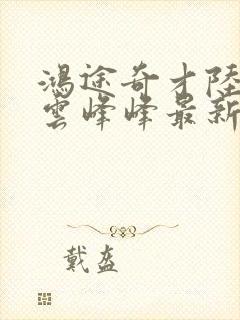 鴻途奇才陸
雲峰峰最新
戴盔